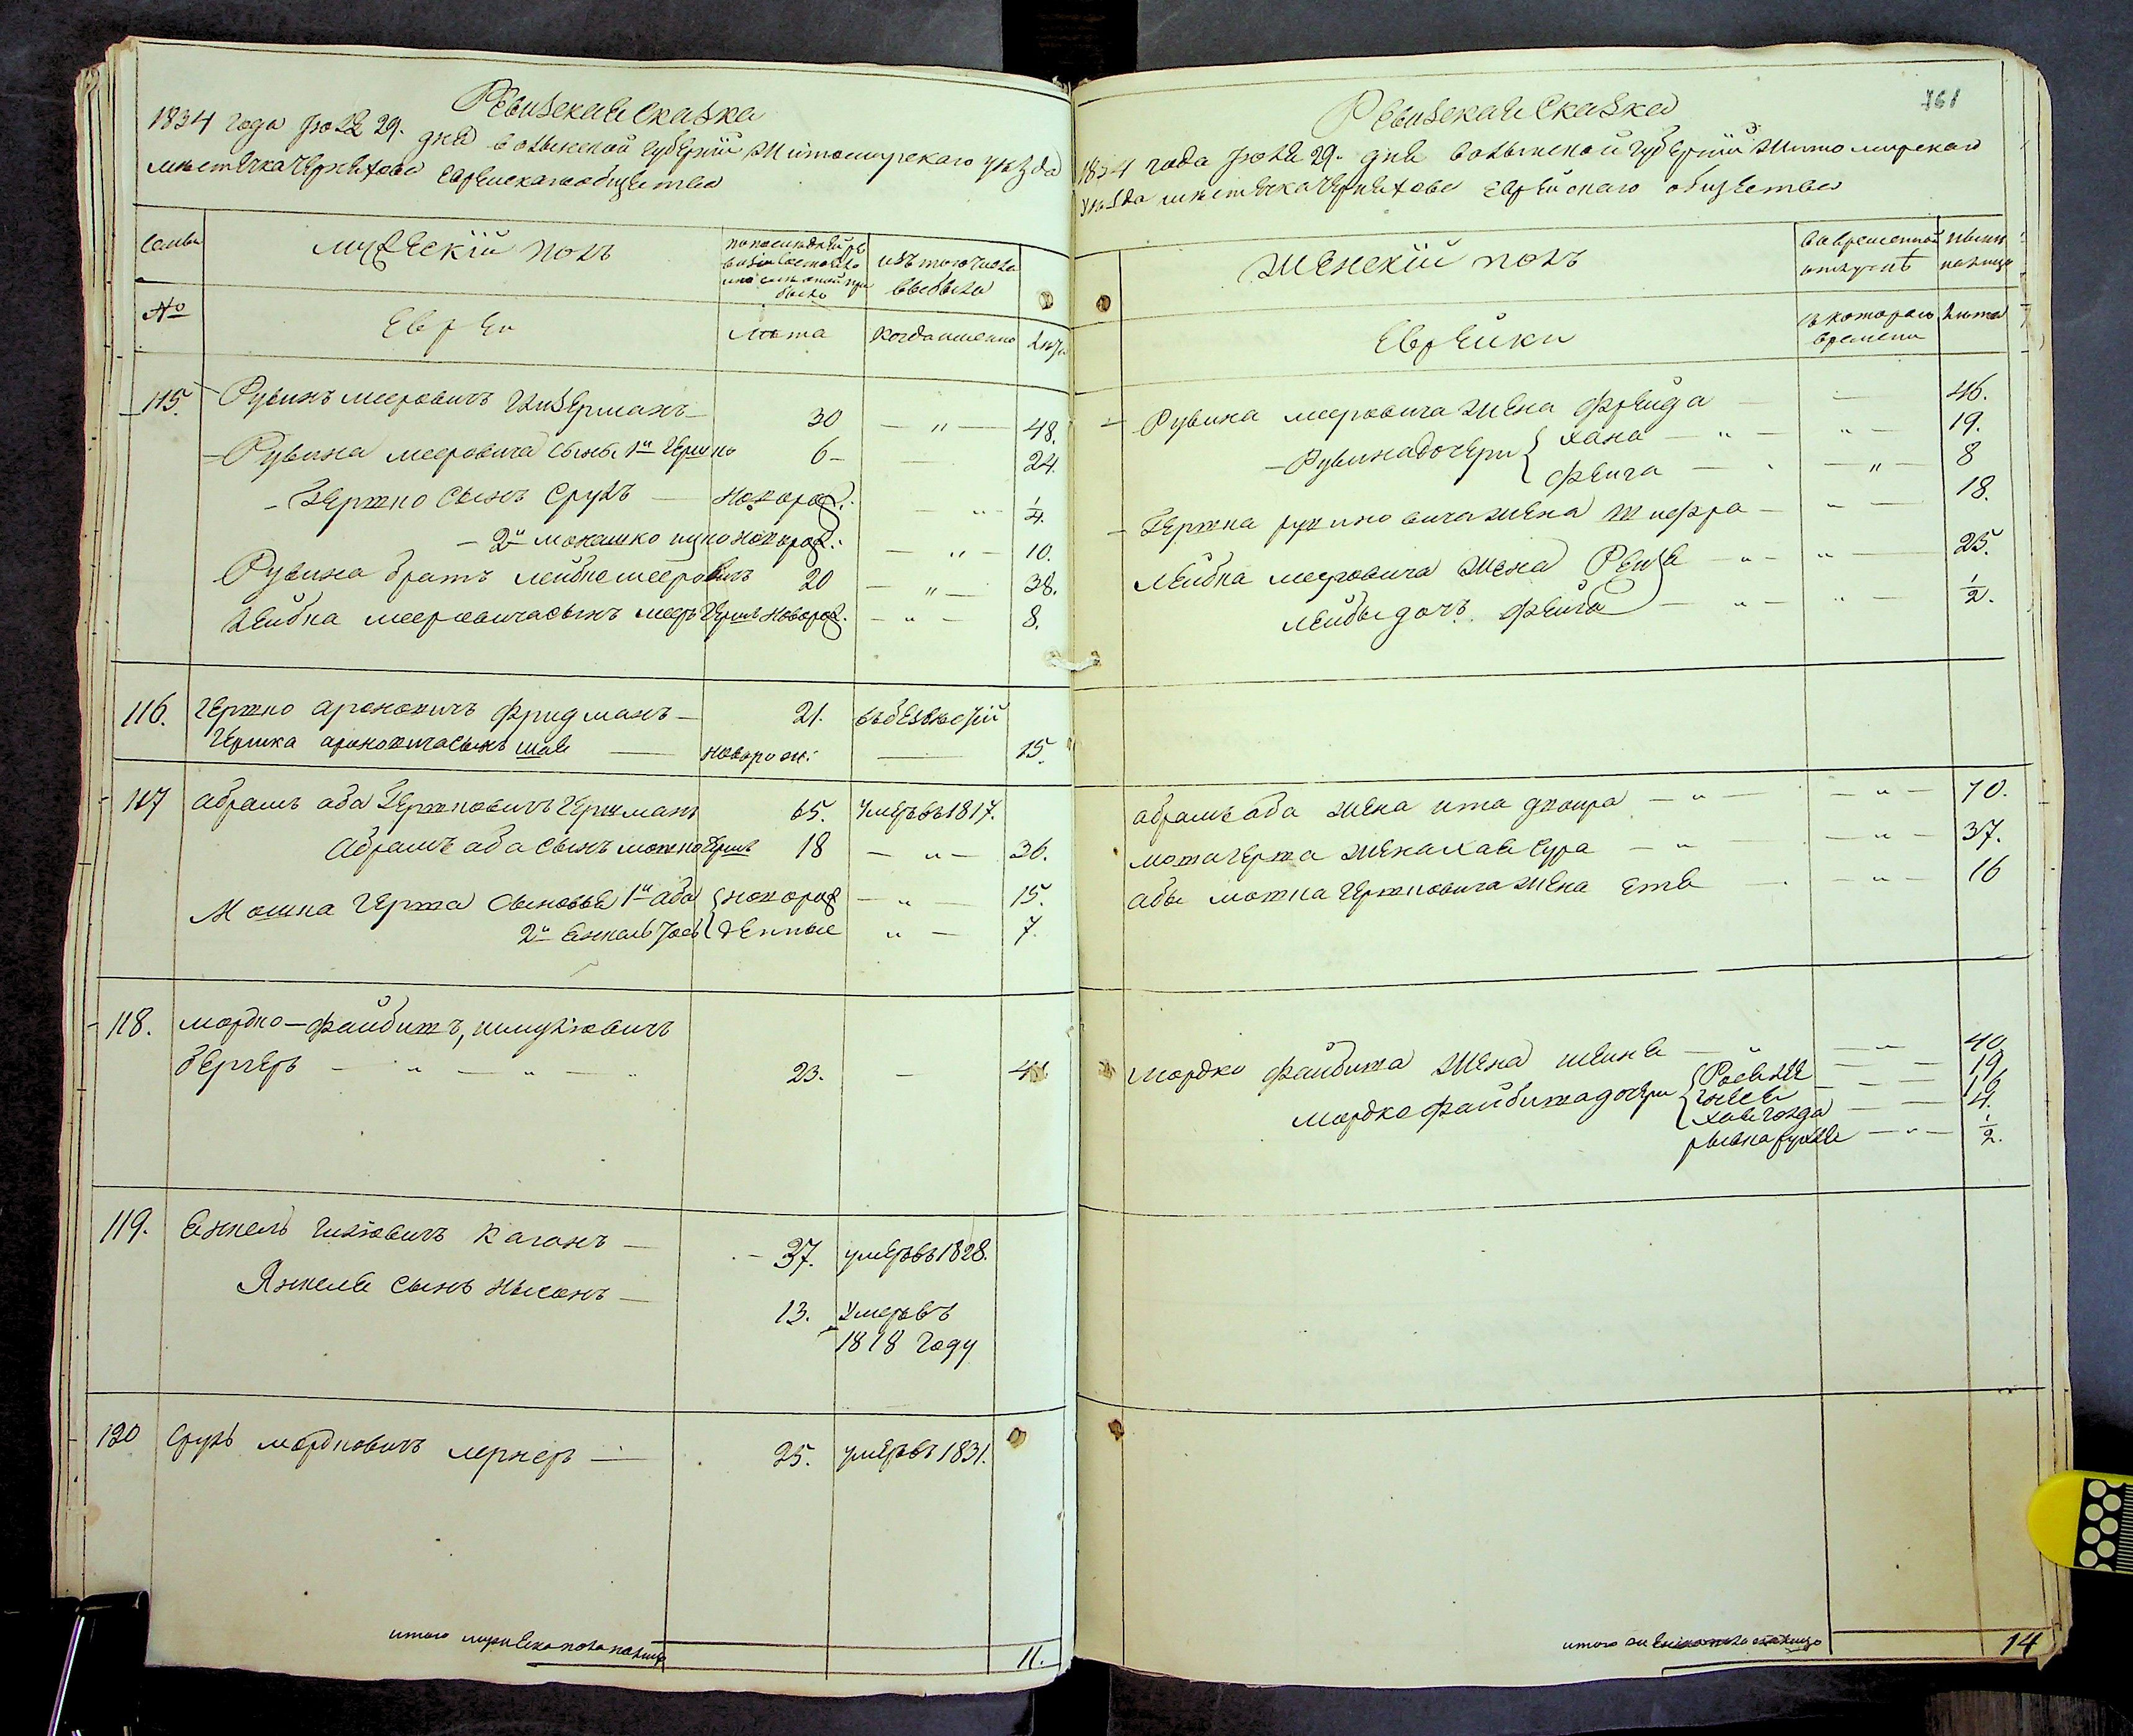 Ревизская сказка
1834 года июля 29. дня Волынской губернiи Житомирского уезда
местечка Черняхова еврейского общества
Семьи
мужескiй полъ
по последней ре
визiи состояло
и после оной при
было
изъ того числа
выбыло
№
Евреи
лета
когда именно
лета
115. Рувинъ мееровичъ 30 — „ — 48.
Рувина мееровича сынъ 1й Гершко 6 — 24.
Гершко сынъ Сруль — новорож: — „ — 1/4.
2й мошко новорож: — „ — 10.
Рувина братъ лейбка мееровичъ 20 — „ — 38.
Лейбка мееровича сынъ мееръ Гершъ новорож. — „ — 8.
116. Гершко ароновичъ фридманъ — 21.
Гершка ароновича сынъ — новорож: — 15.
117 абрамъ аба Гершковичъ Гершманъ 65. умеръ въ 1817.
Абрамъ аба сынъ мошко Гершъ 18 — „ — 36.
Мошка Герша сыновья 1й аба новорож — „ — 15.
2й янкель Iось денные „ — 7.
118. мордко-файбишъ,
бергеръ — „ — „ — „ 23. —
119. Янкель каганъ — 37. умеръ въ 1828.
Янкеля сынъ нысонъ — 13. умеръ въ
1818 году
120 Сруль мордковичъ лернеръ — 25. умеръ въ 1831.
итого мужеска пола налицо 11.
761
Ревизская сказка
1834 года июля 29. дня Волынской губернiи Житомирского
уезда местечка Черняхова еврейского общества
Женскiй полъ
во временной
отлучке
ныне
налицо
Еврейки
съ которого
времени
лета
Рувина мееровича жена фрейда — — 46.
Рувина дочери хана — „ — „ — 19.
фейга — — „ — 8
Гершка рувиновича жена шифра — „ — 18.
Лейбка мееровича жена Рейзя — „ — „ — 25.
лейбы дочь фейга — „ — „ — 1/2.
абрамъ аба жена ита двойра — „ — — „ — 70.
мошка герша жена хая сура — „ — — „ — 37.
абы мошка гершковича жена етя — — „ — 16
Мордко файбиша жена шейня — — „ — 40
мордко файбиша дочери 19
16
хая голда 4.
рывка рухля — „ — 1/2.
итого женска пола налицо 14